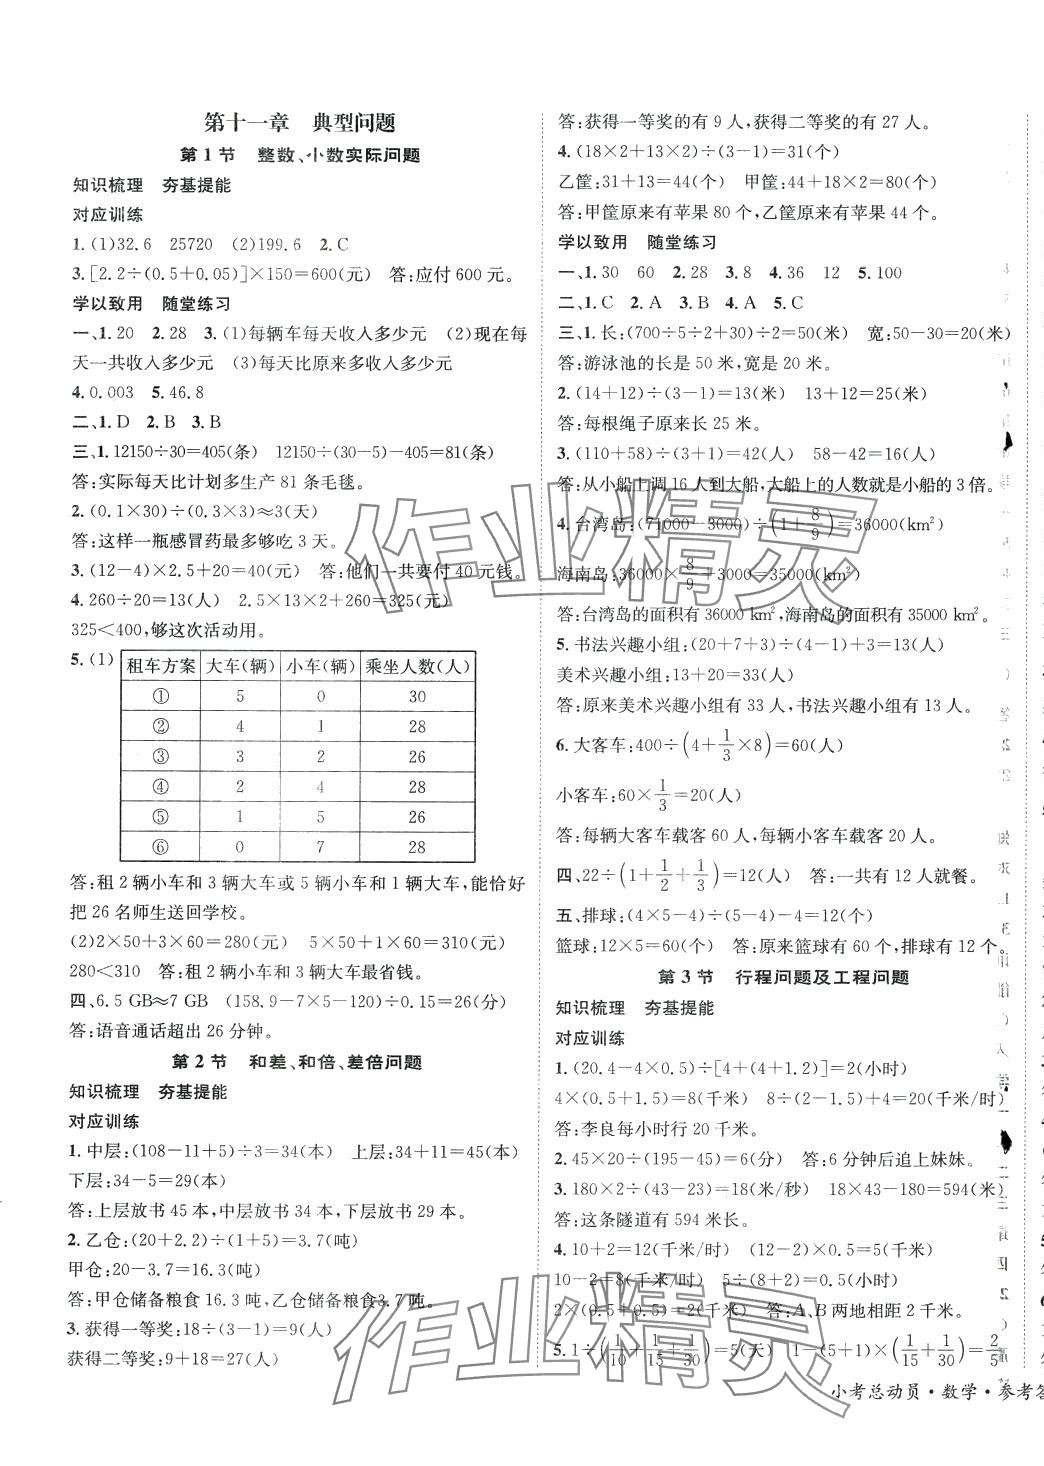 第十一章　典型问题
第1节　整数、小数实际问题
知识梳理　夯基提能
对应训练
1.(1)32.6　25720　(2)199.6　2.C
3.[2.2÷(0.5+0.05)]×150=600(元)　答:应付600元。
学以致用　随堂练习
一、1.20　2.28　3.(1)每辆车每天收入多少元　(2)现在每
天一共收入多少元　(3)每天比原来多收入多少元
4.0.003　5.46.8
二、1.D　2.B　3.B
三、1.12150÷30=405(条)　12150÷(30-5)-405=81(条)
答:实际每天比计划多生产81条毛毯。
2.(0.1×30)÷(0.3×3)≈3(天)
答:这样一瓶感冒药最多够吃3天。
3.(12-4)×2.5+20=40(元)　答:他们一共要付40元钱。
4.260÷20=13(人)　2.5×13×2+260=325(元)
325<400,够这次活动用。
5.(1)
租车方案　大车(辆)　小车(辆)　乘坐人数(人)
①　5　0　30
②　4　1　28
③　3　2　26
④　2　4　28
⑤　1　5　26
⑥　0　7　28
答:租2辆小车和3辆大车或5辆小车和1辆大车,能恰好
把26名师生送回学校。
(2)2×50+3×60=280(元)　5×50+1×60=310(元)
280<310　答:租2辆小车和3辆大车最省钱。
四、6.5 GB≈7 GB　(158.9-7×5-120)÷0.15=26(分)
答:语音通话超出26分钟。
第2节　和差、和倍、差倍问题
知识梳理　夯基提能
对应训练
1.中层:(108-11+5)÷3=34(本)　上层:34+11=45(本)
下层:34-5=29(本)
答:上层放书45本,中层放书34本,下层放书29本。
2.乙仓:(20+2.2)÷(1+5)=3.7(吨)
甲仓:20-3.7=16.3(吨)
答:甲仓储备粮食16.3吨,乙仓储备粮食3.7吨。
3.获得一等奖:18÷(3-1)=9(人)
获得二等奖:9+18=27(人)
答:获得一等奖的有9人,获得二等奖的有27人。
4.(18×2+13×2)÷(3-1)=31(个)
乙筐:31+13=44(个)　甲筐:44+18×2=80(个)
答:甲筐原来有苹果80个,乙筐原来有苹果44个。
学以致用　随堂练习
一、1.30　60　2.28　3.8　4.36　12　5.100
二、1.C　2.A　3.B　4.A　5.C
三、1.长:(700÷5÷2+30)÷2=50(米)　宽:50-30=20(米)
答:游泳池的长是50米,宽是20米。
2.(14+12)÷(3-1)=13(米)　13+12=25(米)
答:每根绳子原来长25米。
3.(110+58)÷(3+1)=42(人)　58-42=16(人)
答:从小船上调16人到大船,大船上的人数就是小船的3倍。
4.台湾岛:(71000-3000)÷(1+8/9)=36000(km²)
海南岛:36000×8/9+3000=35000(km²)
答:台湾岛的面积有36000 km²,海南岛的面积有35000 km²。
5.书法兴趣小组:(20+7+3)÷(3-1)-2=13(人)
美术兴趣小组:13+20=33(人)
答:原来美术兴趣小组有33人,书法兴趣小组有13人。
6.大客车:400÷(4+1/3×8)=60(人)
小客车:60×1/3=20(人)
答:每辆大客车载客60人,每辆小客车载客20人。
四、22÷(1+1/2+1/3)=12(人)　答:一共有12人就餐。
五、排球:(4×5-4)÷(5-4)-4=12(个)
篮球:12×5=60(个)　答:原来篮球有60个,排球有12个。
第3节　行程问题及工程问题
知识梳理　夯基提能
对应训练
1.(20.4-4×0.5)÷[4+(4+1.2)]=2(小时)
4×(0.5+1.5)=8(千米)　8÷(2-1.5)+4=20(千米/时)
答:李良每小时行20千米。
2.45×20÷(195-45)=6(分)　答:6分钟后追上妹妹。
3.180×2÷(43-23)=18(米/秒)　18×43-180=594(米)
答:这条隧道有594米长。
4.10+2=12(千米/时)　(12-2)×0.5=5(千米)
10-2=8(千米/时)　5÷(8+2)=0.5(小时)
2×(0.5+0.5)=2(千米)　答:A、B两地相距2千米。
5.1÷(1/10+1/15+1/30)=5(天)　1-(5+1)×(1/15+1/30)=2/5
小考总动员·数学·参考答
作业精灵
作业精灵